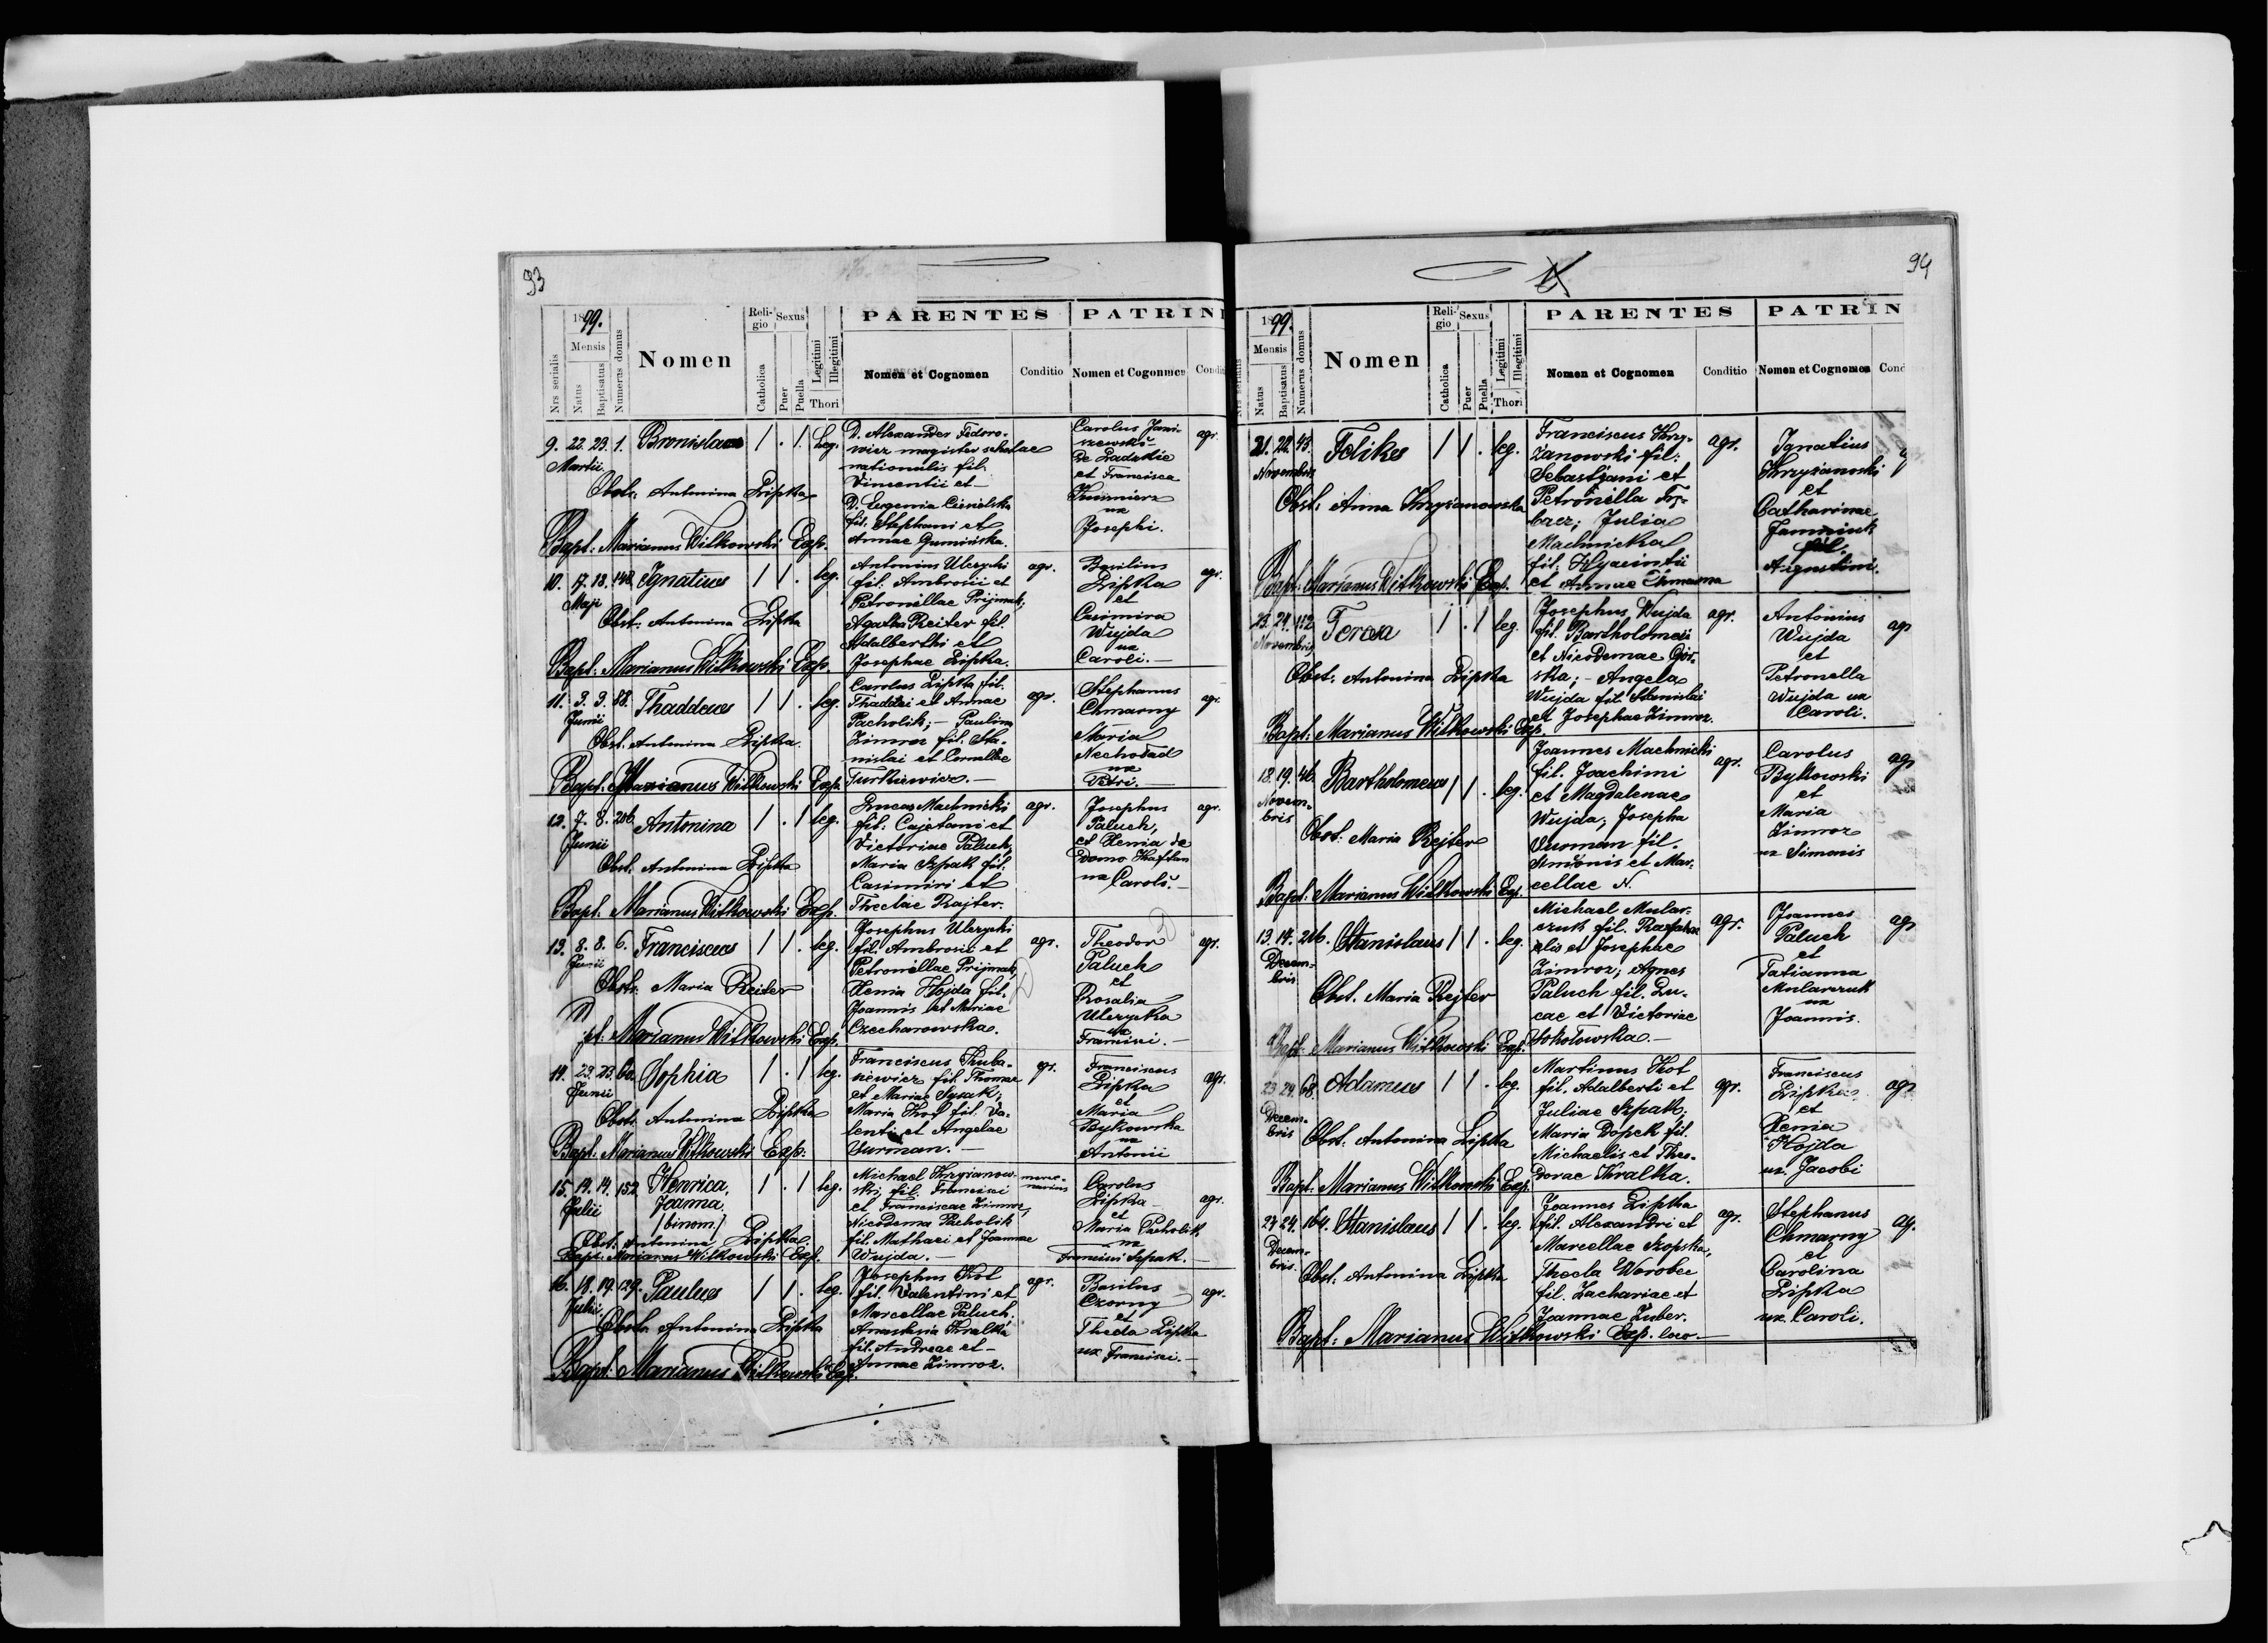 93
1899.
Mensis
Nrs serialis
Natus
Baptisatus
Numerus domus
Nomen
Religio
Sexus
Catholica
Puer
Puella
Legitimi
Illegitimi
Thori
PARENTES
Nomen et Cognomen
Conditio
PATRINI
Nomen et Cogonmen
9. 22. 23. 1. Bronislava 1 . 1. Leg.
Martii
Obstr. Antonina Lipka
Bapt: Marianus Witkowski Exp.
D. Alexander Fedoro-
wicz magister scholae
nationalis fil.
Vincentii et
D. Eugenia Cisielska
fil. Stephani et
Annae Gumińska.
Carolus Jani-
szewski
de Zradzkie
et Francisca
Kazimierz
ux
Josephi.
agr.
10. 17. 18. 148. Ignatius 1 1 . leg.
Maji
Obst: Antonina Lipka
Bapt: Marianus Witkowski Exp.
Antonius Ulczycki
fil. Ambrosii et
Petronellae Prijmak;
Agatha Reiter fil.
Adalberthi et
Josephae Lipka.
agr.
Basilius
Lipka
et
Casimira
Wujda
ux
Caroli.
agr.
11. 3. 3. 88. Thaddeus 1 1 . leg.
Junii
Obst. Antonina Lipka.
Bapt. Marianus Witkowski Exp.
Carolus Lipka fil.
Thaddei et Annae
Pacholik; – Paulina
Zimroz fil. Sta-
nislai et Cornellae
Turkiewicz. –
agr.
Stephanus
Chmarny
Maria
Nechodad
ux
Petri.
agr.
12. 7. 8. 206. Antonina 1 . 1 leg.
Junii
Obst. Antonina Lipka
Bapt. Marianus Witkowski Exp.
Lucas Machnicki
fil: Cajetani et
Victoriae Paluch,
Maria Szpak fil.
Casimiri et
Theclae Rajter.
agr.
Josephus
Paluch,
et Xenia de
domo Kaftan
ux Caroli. –
agr.
13. 8. 8. 6. Franciscus 1 1 . leg.
Junii
Obstr. Maria Reiter
pt: Marianus Witkowski Exp.
Josephus Ulczycki
fil. Ambrosii et
Petronellae Prijmak,
Xenia Hojda fil.
Joannis et Mariae
Czecharowska.
agr.
Theodor
Paluch
et
Rosalia
Ulczycka
ux
Francisci. –
agr.
14. 23. 23. 60. Sophia 1 . 1 leg.
Junii
Obst. Antonina Lipka
Bapt. Marianus Witkowski Exp.
Franciscus Kuba-
siewicz fil. Thomae
et Mariae Sysak,
Maria Kot fil. Va-
lenti et Angelae
Surman. –
agr.
Franciscus
Lipka
et
Maria
Bykowska
ux
Antonii
agr.
15. 14. 14. 152. Henrica, 1 . 1 leg.
Julii
Joanna
/binom/
Obst: Antonina Lipka.
Bapt. Marianus Witkowski Exp.
Michael Krzyżanow-
ski, fil. Francisci
et Franciscae Zimroz,
Nicodema Pacholik
fil. Mathaei et Joannae
Wujda. –
merce-
narius
Carolus
Lipka
et
Maria Pacholik
ux
Francisci Szpak. –
agr.
16. 18. 19. 129. Paulus 1 1 . leg.
Julii
Obst. Antonina Lipka
Bapt: Marianus Witkowski Exp.
Josephus Kot
fil. Valentini et
Marcellae Paluch;
Anastasia Kralka
fil. Andreae et
Annae Zimroz.
agr.
Basilus
Czorny
et
Thecla Lipka
ux Francisci. –
agr.
94
1899.
Mensis
Nrs serialis
Natus
Baptisatus
Numerus domus
Nomen
Religio
Sexus
Catholica
Puer
Puella
Legitimi
Illegitimi
Thori
PARENTES
Nomen et Cognomen
Conditio
PATRIN
Nomen et Cognomen
Cond
21. 22. 43. Felikes 1 1 . leg.
Novembris
Obst. Anna Krzyżanowska
Bapt: Marianus Witkowski Exp.
Franciscus Krzy-
żanowski fil:
Sebastjani et
Petronella
Julia
Machnicka
fil. Hyacintii
et Annae Chmarna
agr.
Ignatius
Krzyżanoski
et
Catharinae
Janniuk
fil.
Augustini.
23. 24. 112. Teresa 1 . 1 leg.
Novembris
Obst. Antonina Lipka
Bapt: Marianus Witkowski Exp.
Josephus Wujda
fil. Bartholomei
et Nicodemae Gór-
ska; – Angela
Wujda fil. Stanislai
et Josephae Zimroz.
agr.
Antonius
Wujda
et
Petronella
Wujda ux
Caroli.
agr
18. 19. 46. Bartholomeus 1 1 . leg.
Novem-
bris
Obst. Maria Rejter
Bapt: Marianus Witkowski Exp.
Joannes Machnicki
fil. Joachimi
et Magdalenae
Wujda; Josepha
Surman fil.
Simonis et Mar-
cellae N.
agr.
Carolus
Bykowski
et
Maria
Zimroz
ux Simonis
agr
13. 14. 206. Stanislaus 1 1 . leg.
Decem-
bris
Obst. Maria Rejter
Bapt. Marianus Witkowski Exp.
Michael Mular-
czuk fil. Rafa
elis et Josephae
Zimroz; Agnes
Paluch fil. Lu-
cae et Victoriae
Sokołowska. –
agr.
Joannes
Paluch
et
Tatianna
Mularczuk
ux
Joannis.
agr
23 24. 68. Adamus 1 1 . leg.
Decem-
bris
Obst. Antonina Lipka
Bapt. Marianus Witkowski Exp.
Martinus Kot
fil. Adalberti et
Juliae Szpak;
Maria Dopek fil.
Michaelis et Theo-
dorae Kralka.
agr.
Franciscus
Lipka
et
Xenia
Hojda
ux. Jacobi
agr
24 24. 164. Stanislaus 1 1 . leg.
Decem-
bris.
Obst. Antonina Lipka
Bapt: Marianus Witkowski Exp. loco. –
Joannes Lipka
fil. Alexandri et
Marcellae Szopska,
Thecla Worobec
fil. Zachariae et
Joannae Zuber.
agr.
Stephanus
Chmarny
et
Carolina
Lipka
ux. Caroli.
ag.